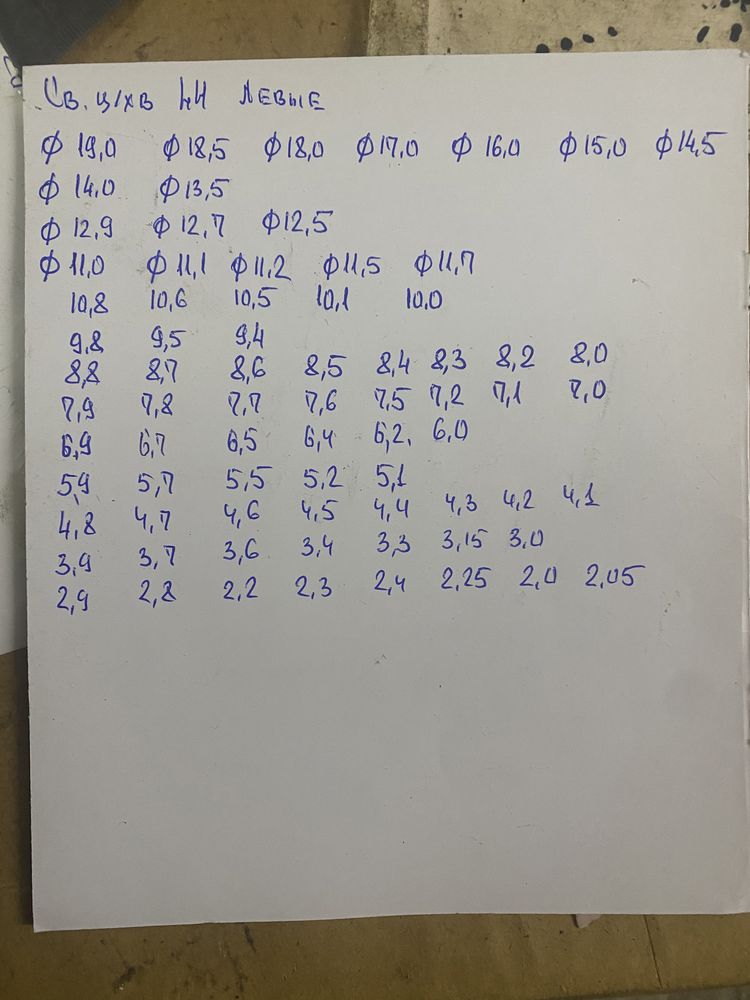 Св. ц/хв LH ЛЕВЫЕ
ф 19,0 ф 18,5 ф18,0 ф17,0 ф 16,0 ф 15,0 ф14,5
ф 14,0 ф13,5
ф 12,9 ф 12,7 ф12,5
ф 11,0 ф 11,1 ф11,2 ф11,5 ф11,7
10,8 10,6 10,5 10,1 10,0
9,8 9,5 9,4
8,8 8,7 8,6 8,5 8,4 8,3 8,2 8,0
7,9 7,8 7,7 7,6 7,5 7,2 7,1 7,0
6,9 6,7 6,5 6,4 6,2. 6,0
5,9 5,7 5,5 5,2 5,1
4,8 4,7 4,6 4,5 4,4 4,3 4,2 4,1
3,9 3,7 3,6 3,4 3,3 3,15 3,0
2,9 2,8 2,2 2,3 2,4 2,25 2,0 2,05